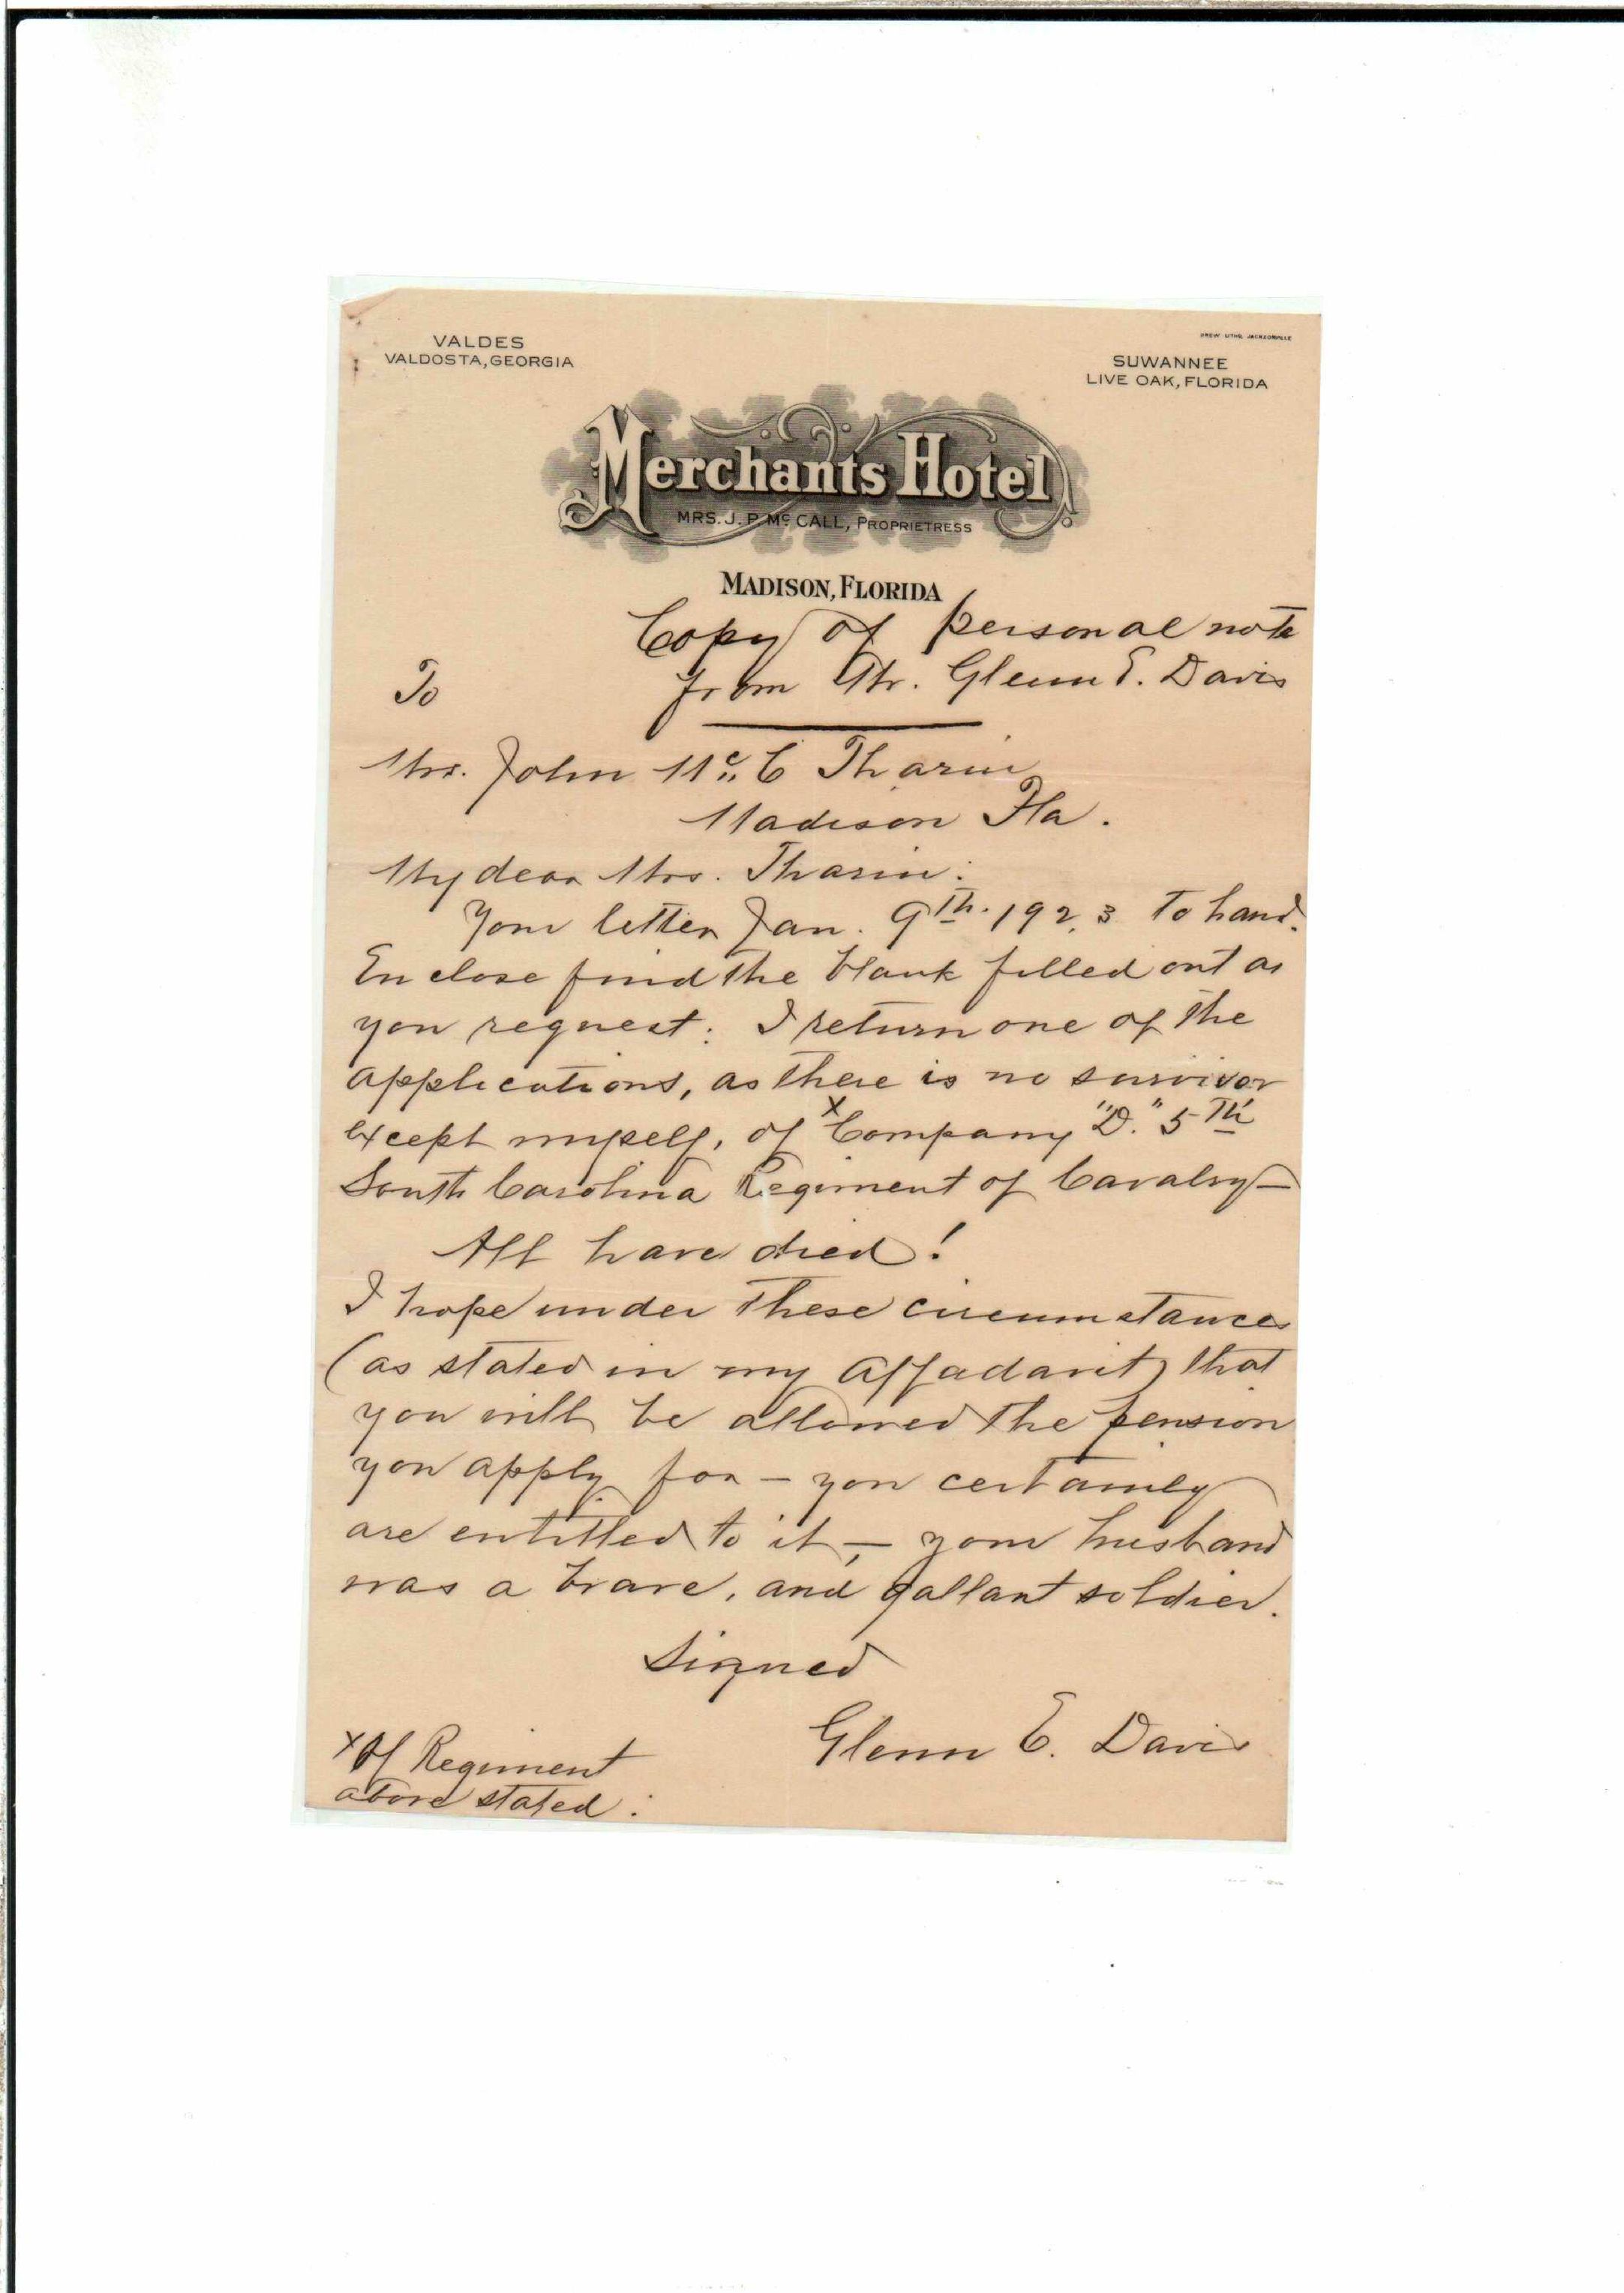 VALDES
VALDOSTA, GEORGIA
DREW LITHO. JACKSONVILLE
SUWANNEE
LIVE OAK, FLORIDA
Merchants Hotel
MRS. J. P. McCALL, PROPRIETRESS
MADISON, FLORIDA
Copy of personal note
from Mr. Glenn E. Davis
To
Mrs. John Mc. C Tharin
Madison Fla.
My dear Mrs. Tharin:
Your letter Jan. 9th. 1923 to hand.
Enclose find the blank filled out as
you request. I return one of the
applications, as there is no survivor
except myself, of xCompany "D." 5th
South Carolina Regiment of Cavalry—
All have died!
I hope under these circumstances
(as stated in my affadavit) that
you will be allowed the pension
you apply for — you certainly
are entitled to it, — your husband
was a brave, and gallant soldier.
Signed
Glenn E. Davis
x Of Regiment
above stated: